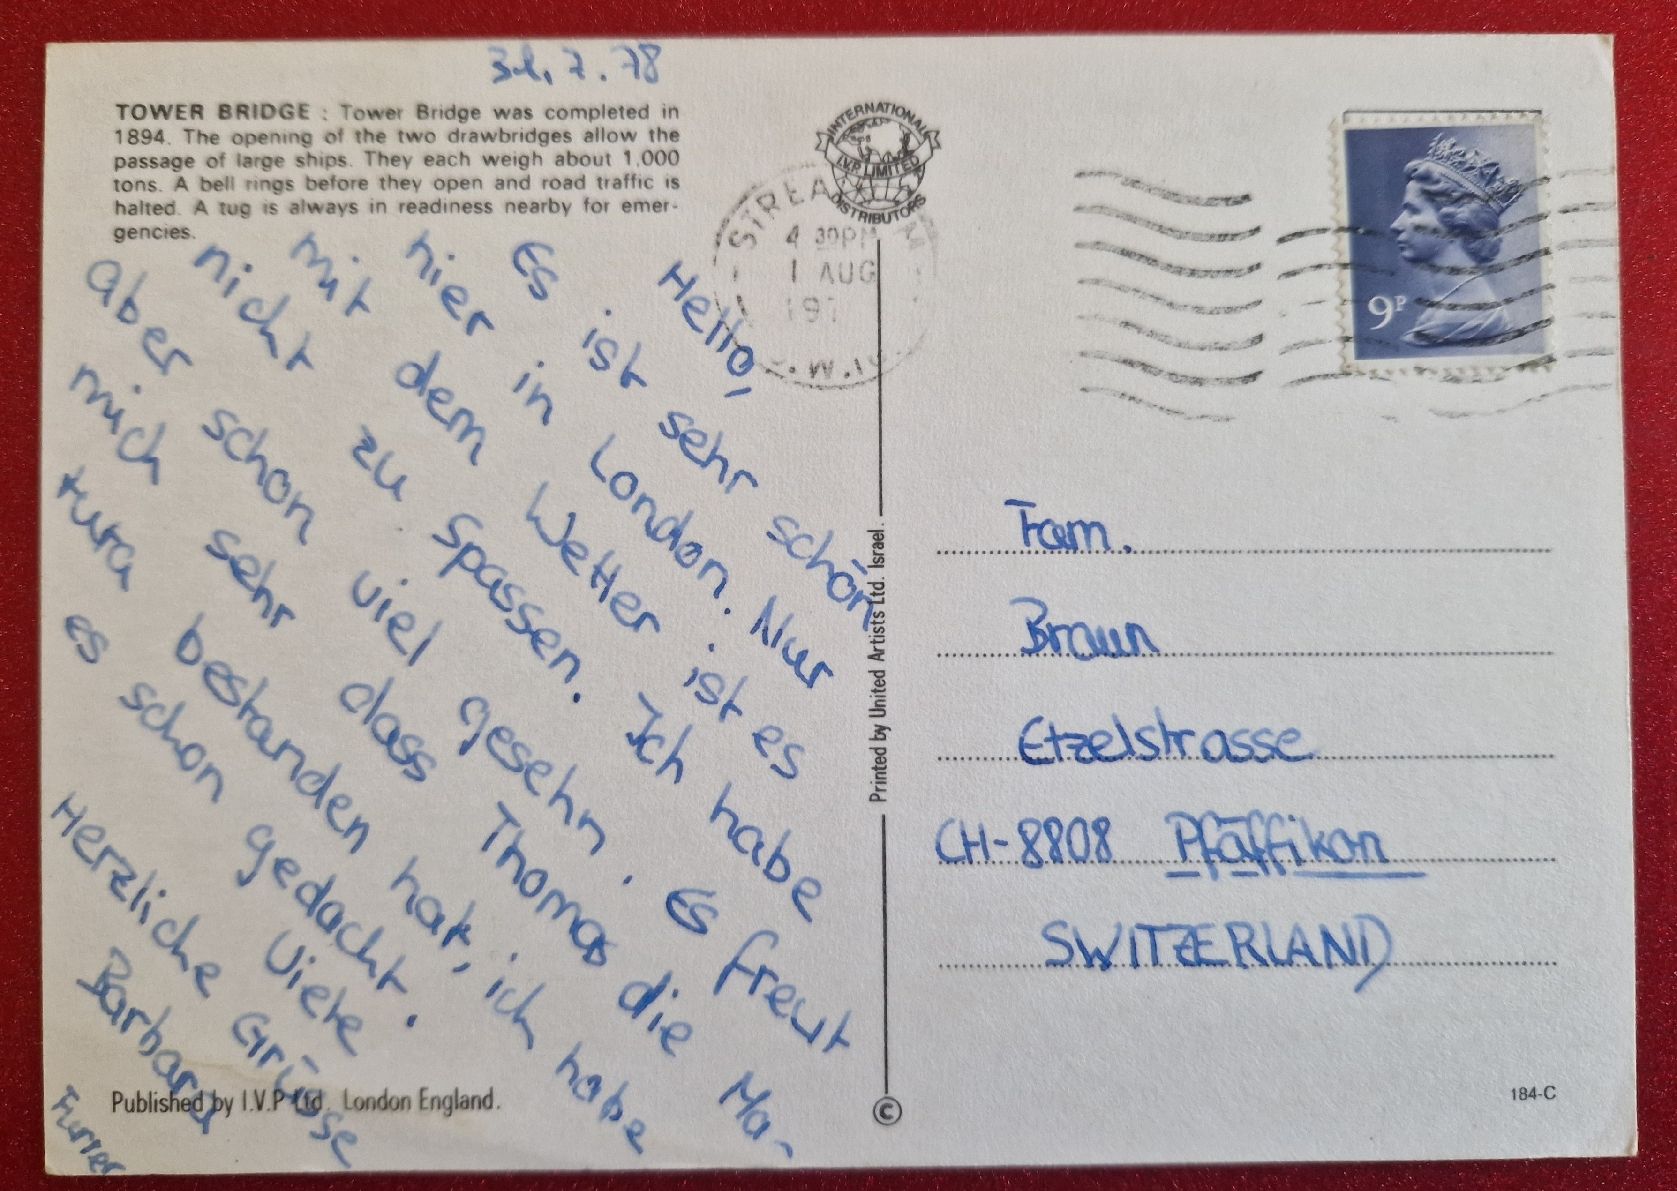 31.7.78
TOWER BRIDGE : Tower Bridge was completed in
1894. The opening of the two drawbridges allow the
passage of large ships. They each weigh about 1,000
tons. A bell rings before they open and road traffic is
halted. A tug is always in readiness nearby for emer-
gencies.
Hello,
Es ist sehr schön
hier in London. Nur
mit dem Wetter ist es
nicht zu Spassen. Ich habe
aber schon viel gesehn. Es freut
mich sehr dass Thomas die Ma-
tura bestanden hat, ich habe
es schon gedacht.
Viele
Herzliche Grüsse
Barbara
Furrer
Published by I.V.P Ltd. London England.
INTERNATIONAL
I.V.P. LIMITED
DISTRIBUTORS
4 30PM
1 AUG
197
S.W.16
Printed by United Artists Ltd. Israel.
©
9P
Fam.
Braun
Etzelstrasse
CH-8808 Pfäffikon
SWITZERLAND
184-C